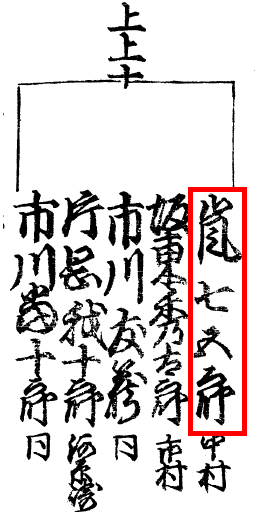 上上十
嵐七五郎 中村
坂東秀乃太郎 市村
市川友蔵 同
片岡我十郎 河原崎
市川当十郎 同